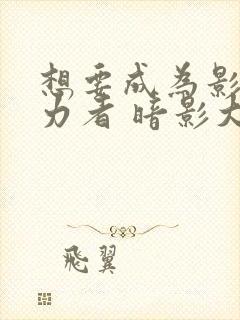 想要成为影
力者 暗影大
飛翼